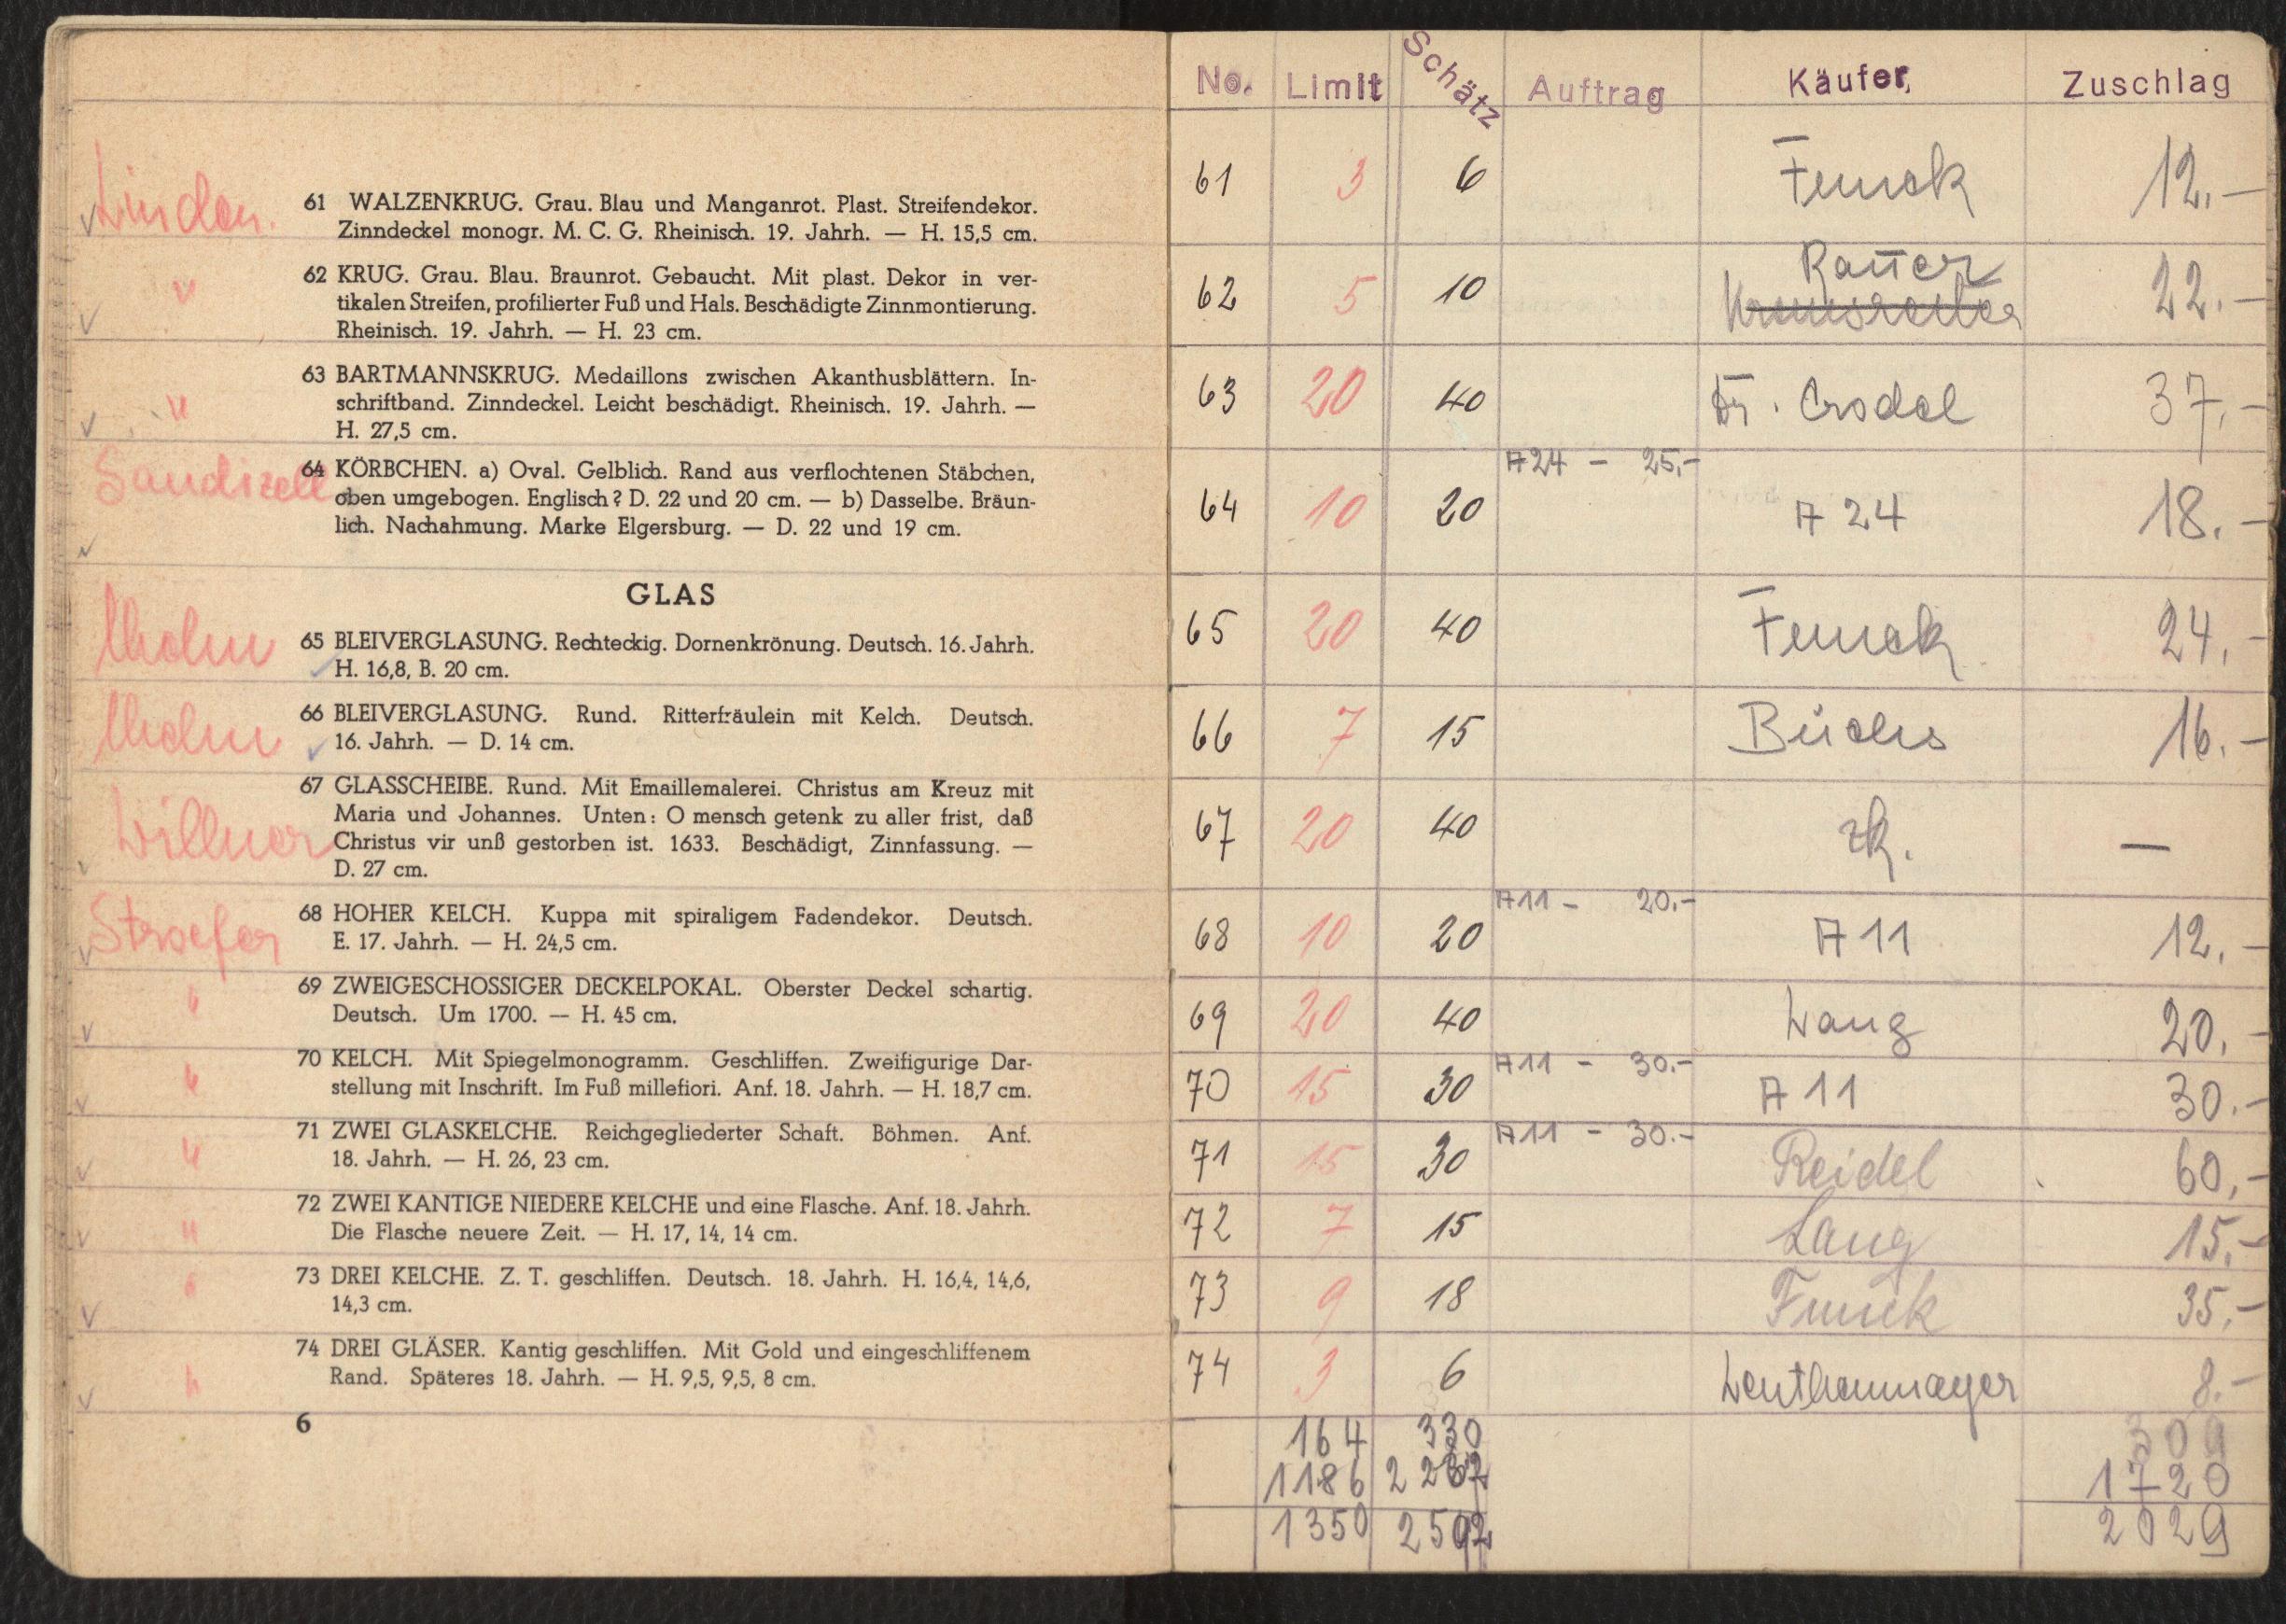 Linden.
61 WALZENKRUG. Grau. Blau und Manganrot. Plast. Streifendekor.
Zinndeckel monogr. M. C. G. Rheinisch. 19. Jahrh. — H. 15,5 cm.
"
62 KRUG. Grau. Blau. Braunrot. Gebaucht. Mit plast. Dekor in ver-
tikalen Streifen, profilierter Fuß und Hals. Beschädigte Zinnmontierung.
Rheinisch. 19. Jahrh. — H. 23 cm.
"
63 BARTMANNSKRUG. Medaillons zwischen Akanthusblättern. In-
schriftband. Zinndeckel. Leicht beschädigt. Rheinisch. 19. Jahrh. —
H. 27,5 cm.
Sandizell
64 KÖRBCHEN. a) Oval. Gelblich. Rand aus verflochtenen Stäbchen,
oben umgebogen. Englisch? D. 22 und 20 cm. — b) Dasselbe. Bräun-
lich. Nachahmung. Marke Elgersburg. — D. 22 und 19 cm.
GLAS
65 BLEIVERGLASUNG. Rechteckig. Dornenkrönung. Deutsch. 16. Jahrh.
H. 16,8, B. 20 cm.
66 BLEIVERGLASUNG. Rund. Ritterfräulein mit Kelch. Deutsch.
16. Jahrh. — D. 14 cm.
Willner
67 GLASSCHEIBE. Rund. Mit Emaillemalerei. Christus am Kreuz mit
Maria und Johannes. Unten: O mensch getenk zu aller frist, daß
Christus vir unß gestorben ist. 1633. Beschädigt, Zinnfassung. —
D. 27 cm.
Stroefer
68 HOHER KELCH. Kuppa mit spiraligem Fadendekor. Deutsch.
E. 17. Jahrh. — H. 24,5 cm.
"
69 ZWEIGESCHOSSIGER DECKELPOKAL. Oberster Deckel schartig.
Deutsch. Um 1700. — H. 45 cm.
"
70 KELCH. Mit Spiegelmonogramm. Geschliffen. Zweifigurige Dar-
stellung mit Inschrift. Im Fuß millefiori. Anf. 18. Jahrh. — H. 18,7 cm.
"
71 ZWEI GLASKELCHE. Reichgegliederter Schaft. Böhmen. Anf.
18. Jahrh. — H. 26, 23 cm.
"
72 ZWEI KANTIGE NIEDERE KELCHE und eine Flasche. Anf. 18. Jahrh.
Die Flasche neuere Zeit. — H. 17, 14, 14 cm.
"
73 DREI KELCHE. Z. T. geschliffen. Deutsch. 18. Jahrh. H. 16,4, 14,6,
14,3 cm.
"
74 DREI GLÄSER. Kantig geschliffen. Mit Gold und eingeschliffenem
Rand. Späteres 18. Jahrh. — H. 9,5, 9,5, 8 cm.
6
No. Limit Schätz Auftrag Käufer Zuschlag
61 3 6 Funck 12.—
62 5 10 22.—
63 20 40 Dr. Crodel 37.—
A24 – 25.–
64 10 20 A 24 18.—
65 20 40 Funck 24.—
66 7 15 Büchs 16.—
67 20 40 zk. —
A11 – 20.–
68 10 20 A 11 12.—
69 20 40 Lang 20.—
A11 – 30.–
70 15 30 A 11 30.—
A11 – 30.–
71 15 30 Reidel 60.—
72 7 15 Lang 15.—
73 9 18 Funck 35.—
74 3 6 Leuthenmayer 8.—
164 330 309
1186 1720
1350 2029